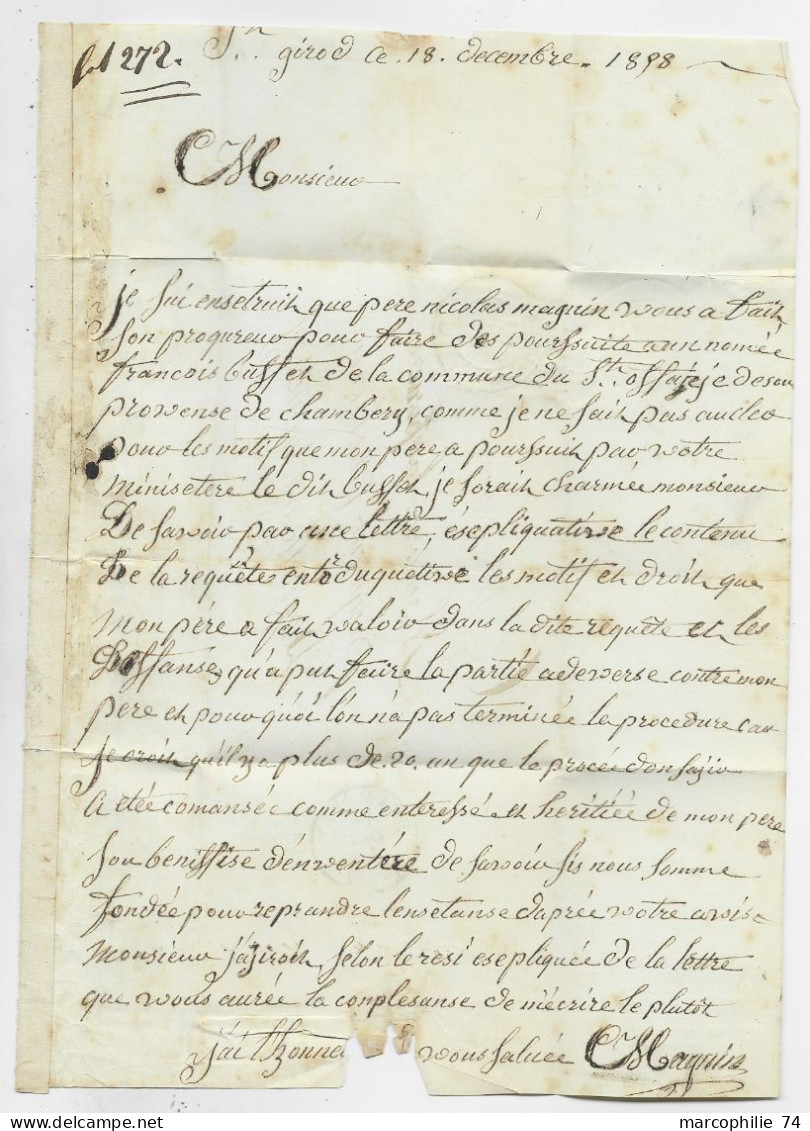 fol 272. St.. girod ce. 18. decembre. 1858
Monsieur
je sui ensetruit que pere nicolas magnin vous a fait
son proqureur pour faire des pourssuite a un nomée
francois bussет de la commune du St.. offaje je desou
provense de chambery, comme je ne sait pas au cler
pour les motif que mon pere a pourssuit par votre
minisetere le dit busset, je serait charmée monsieur
De savoir par une lettre, ésepliquative le contenu
De la requête entrduquetive les motif et droit que
mon pére a fait valoir dans la dite requête et les
Deffanse, qu'a put faire la partié adeverse contre mon
pere et pour quói l'on n'a pas terminée la procedure car
je croit qu'il y a plus de. 20. an que le procée don sajir
A etée comansée comme enteressé et heritiée de mon pere
sou benissise d'énventére de savoir sis nous somme
fondée pour reprandre l'ensetanse daprée votre avis
Monsieur j'ajiroit, selon le resi esepliquée de la lettre
que vous aurée la conplesanse de m'écrire le plutót
j'ai l'honne vous saluée Magnin
www.delcampe.net
marcophilie 74